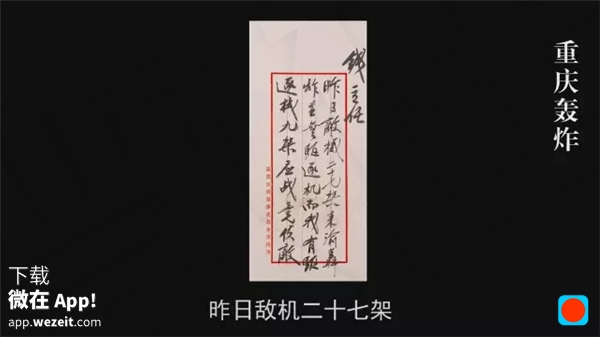 重庆轰炸
錢主任
昨日敵機二十七架来渝轟
炸並無驅逐機而我有驅
逐機九架应战竟使敵
昨日敌机二十七架
下载
微在 App!
app.wezeit.com